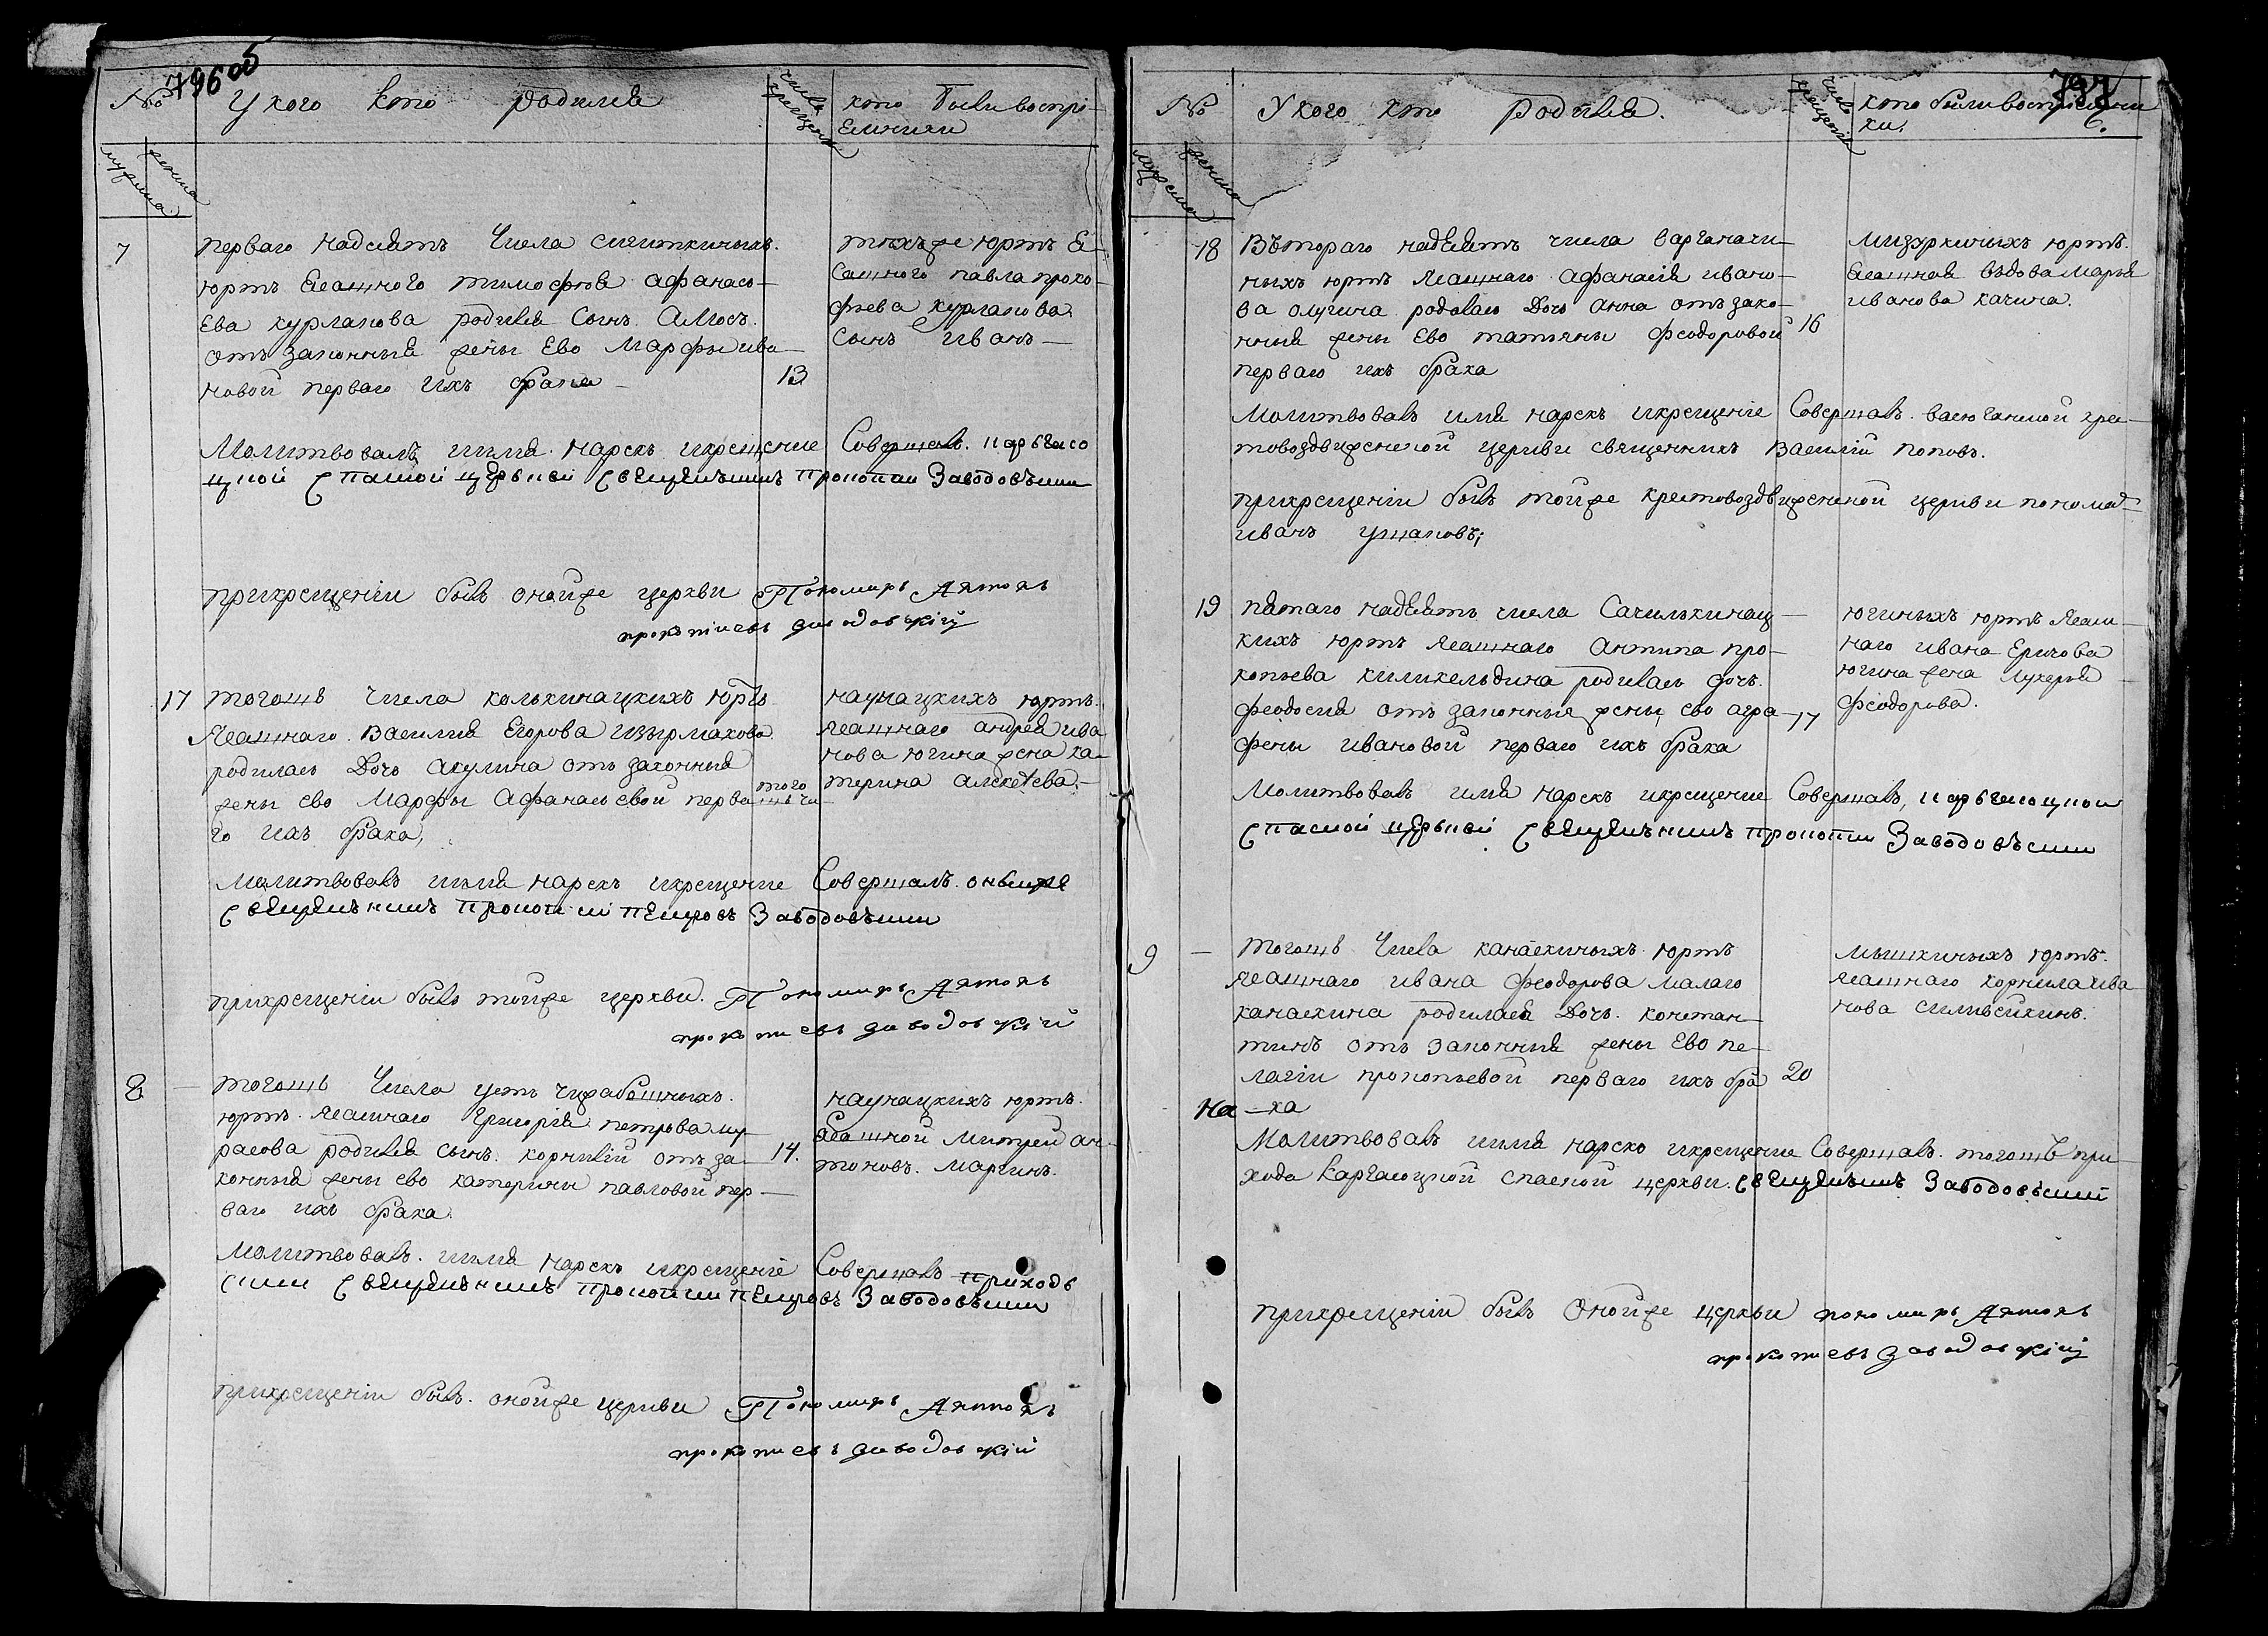 796 об
№ У кого кто родился число крещения кто были воспри-
емники
мужеска женска
7 перваго надесять числа сигиткиныхъ
юртъ Ясашного тимофѣя афанасъ-
Ева курлапова родился Сынъ Амосъ
отъ законныя жены Ево Марфы ива-
новой перваго ихъ брака 13
тѣхъже юртъ Я-
сашного павла проко-
фьева курлапова
Сынъ Иванъ
Молитвовалъ имя нарекъ икрещение Совершалъ каргасо
цкой Спаской церькви Священникъ Прокопии Заводовъскии
прикрещеніи былъ онойже церкви Пономарь Антонъ
прокопиевъ заводовскій
17 тогошъ числа колькинацкихъ юртъ
Ясашнаго Василия Егорова Изырмахова
родилась Дочь акулина отъ законныя
жены ево Марфы Афанасьевой перва-
го ихъ брака,
того
шъ чи-
наунацкихъ юртъ
ясашнаго андрея ива
нова югина жена ка-
терина алексѣева.
Молитвовалъ имя нарекъ икрещение Совершалъ оныиже
Священникъ Прокопии Петровъ Заводовъскии
прикрещеніи былъ тойже церкви. Пономарь Антонъ
прокопиевъ заводовскій
8 тогошъ Числа усть чижабошныхъ
юртъ ясашнаго Григорія петрова му-
расова родился сынъ корнилій отъ за-
конныя жены ево катерины павловой пер-
ваго ихъ брака.
14.
наунацкихъ юртъ
Ясашной Митрей ан-
тоновъ. Маргинъ.
Молитвовалъ имя нарекъ икрещеніе Совершалъ приходъ
скии Священникъ Прокопии Петровъ Заводовъскии
прикрещеніи былъ онойже церкви Пономарь Антонъ
прокопиевъ заводовскій
797
№ У кого кто родился. число крещенія кто были восприемни
ки. 6.
мужеска женска
18 Вътораго надесять числа варганачи-
ныхъ юртъ Ясашнаго Афанасія ивано-
ва олугина родилась Дочь анна отъ зако-
нныя жены Ево татьяны феодоровой 16
перваго ихъ брака
мизуркиныхъ юртъ
Ясашная въдова Марья
иванова качина.
Молитвовалъ имя нарекъ икрещеніе Совершалъ васюганской кре-
товоздвиженской церкви священникъ Василій поповъ.
прикрещеніи былъ тойже крестовоздвиженской церкви пономарь
иванъ ушаковъ;
19 пятаго надесять числа Сачилькинац-
кихъ юртъ Ясашнаго антипа про-
копьева киликельдина родилась дочь
феодосия отъ законныя жены ево агра- 17
фены ивановой перваго ихъ брака
югиныхъ юртъ Ясаш-
наго ивана Еричова
югина жена Лукерья
феодорова.
Молитвовалъ имя нарекъ икрещение Совершалъ, каргасоцкои
Спаской церькви Священникъ прокопии Заводовъскии
9 тогошъ числа канаскиныхъ юртъ
ясашнаго ивана феодорова малаго
канаскина родилася Дочь констан-
тинъ отъ законныя жены Ево пе-
лагіи прокопьевой перваго ихъ бра 20
на-ка
мышкиныхъ юртъ
ясашнаго корнила ива
нова силивейкинъ.
Молитвовалъ имя нареко икрещение Совершалъ тогошъ при
хода Каргасоцкой спаской церкви. Священникъ Заводовъский
прикрещеніи былъ Онойже церкви пономарь Антонъ
прокопиевъ заводовскій